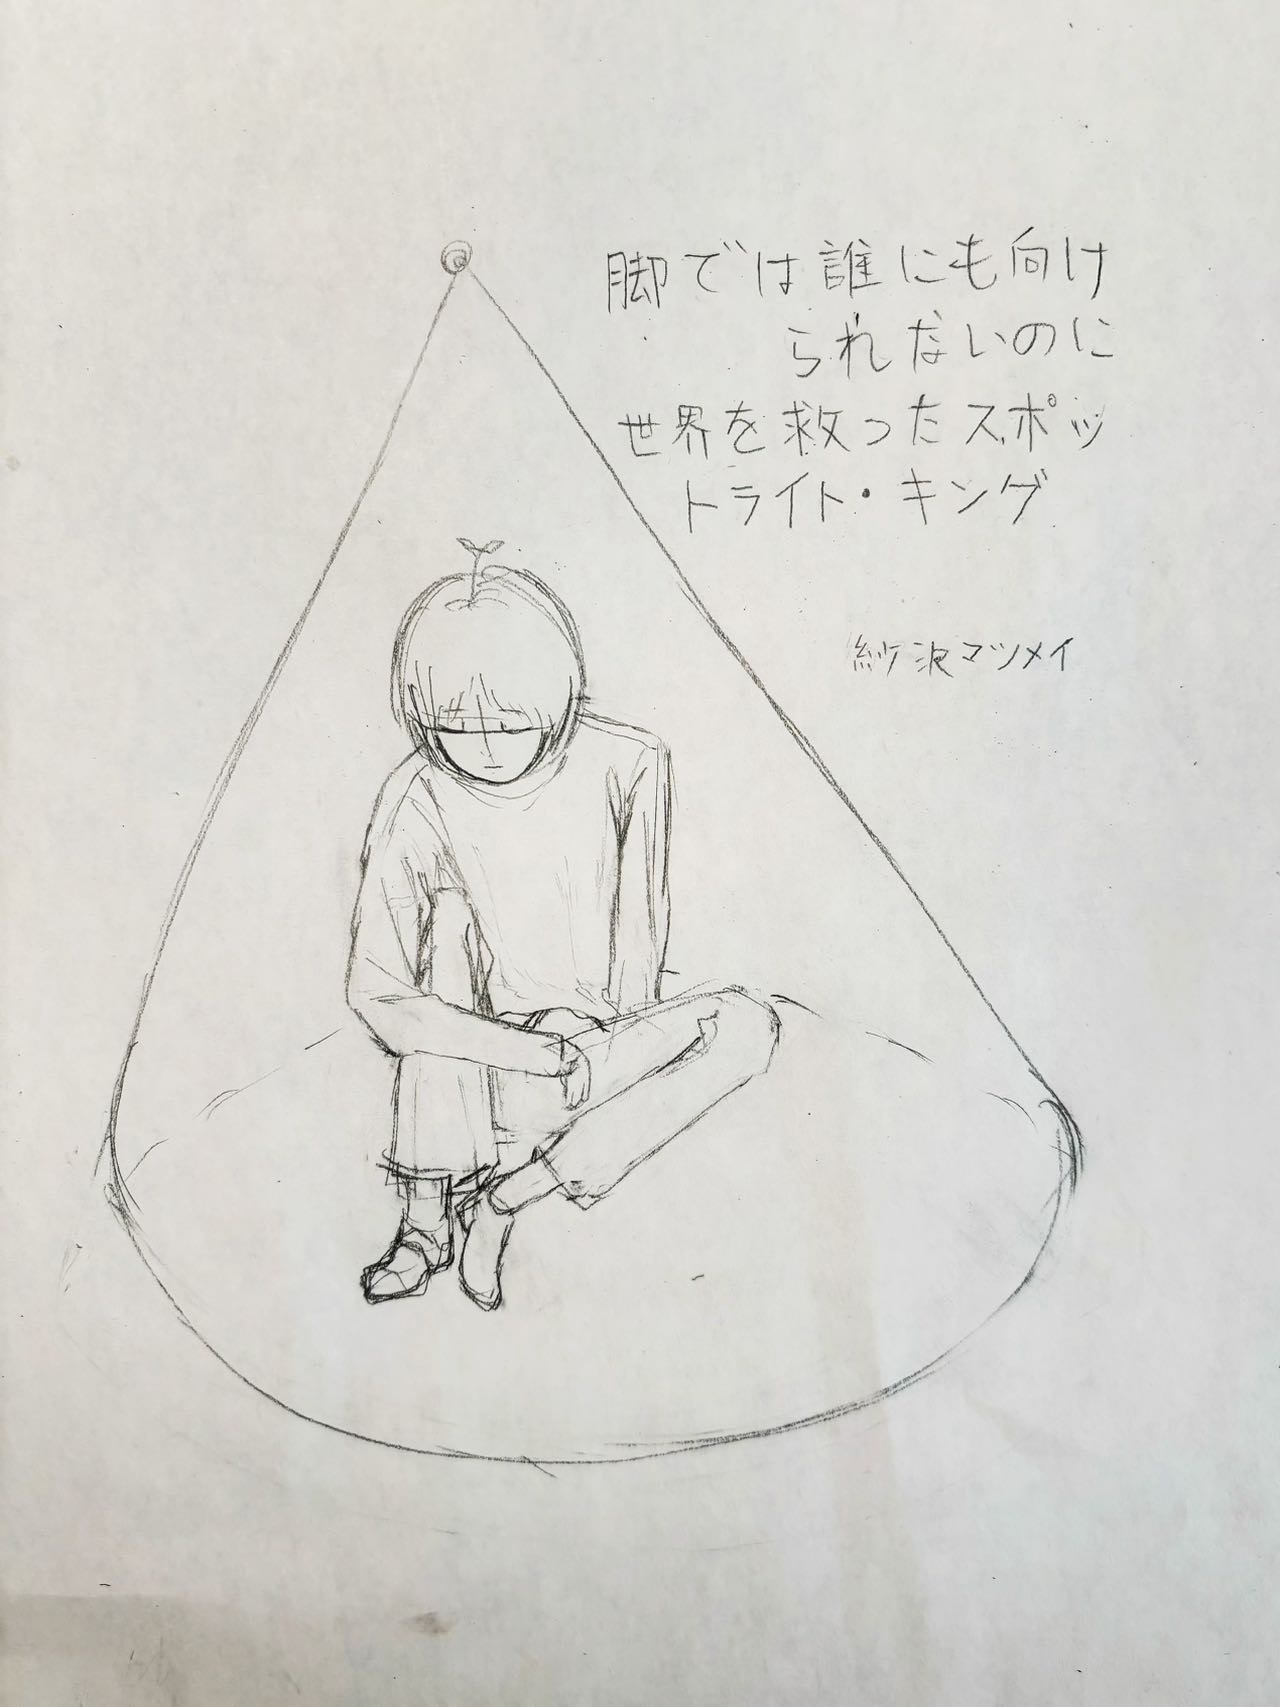 脚では誰にも向け
られないのに
世界を救ったスポッ
トライト・キング
紗波マツメイ